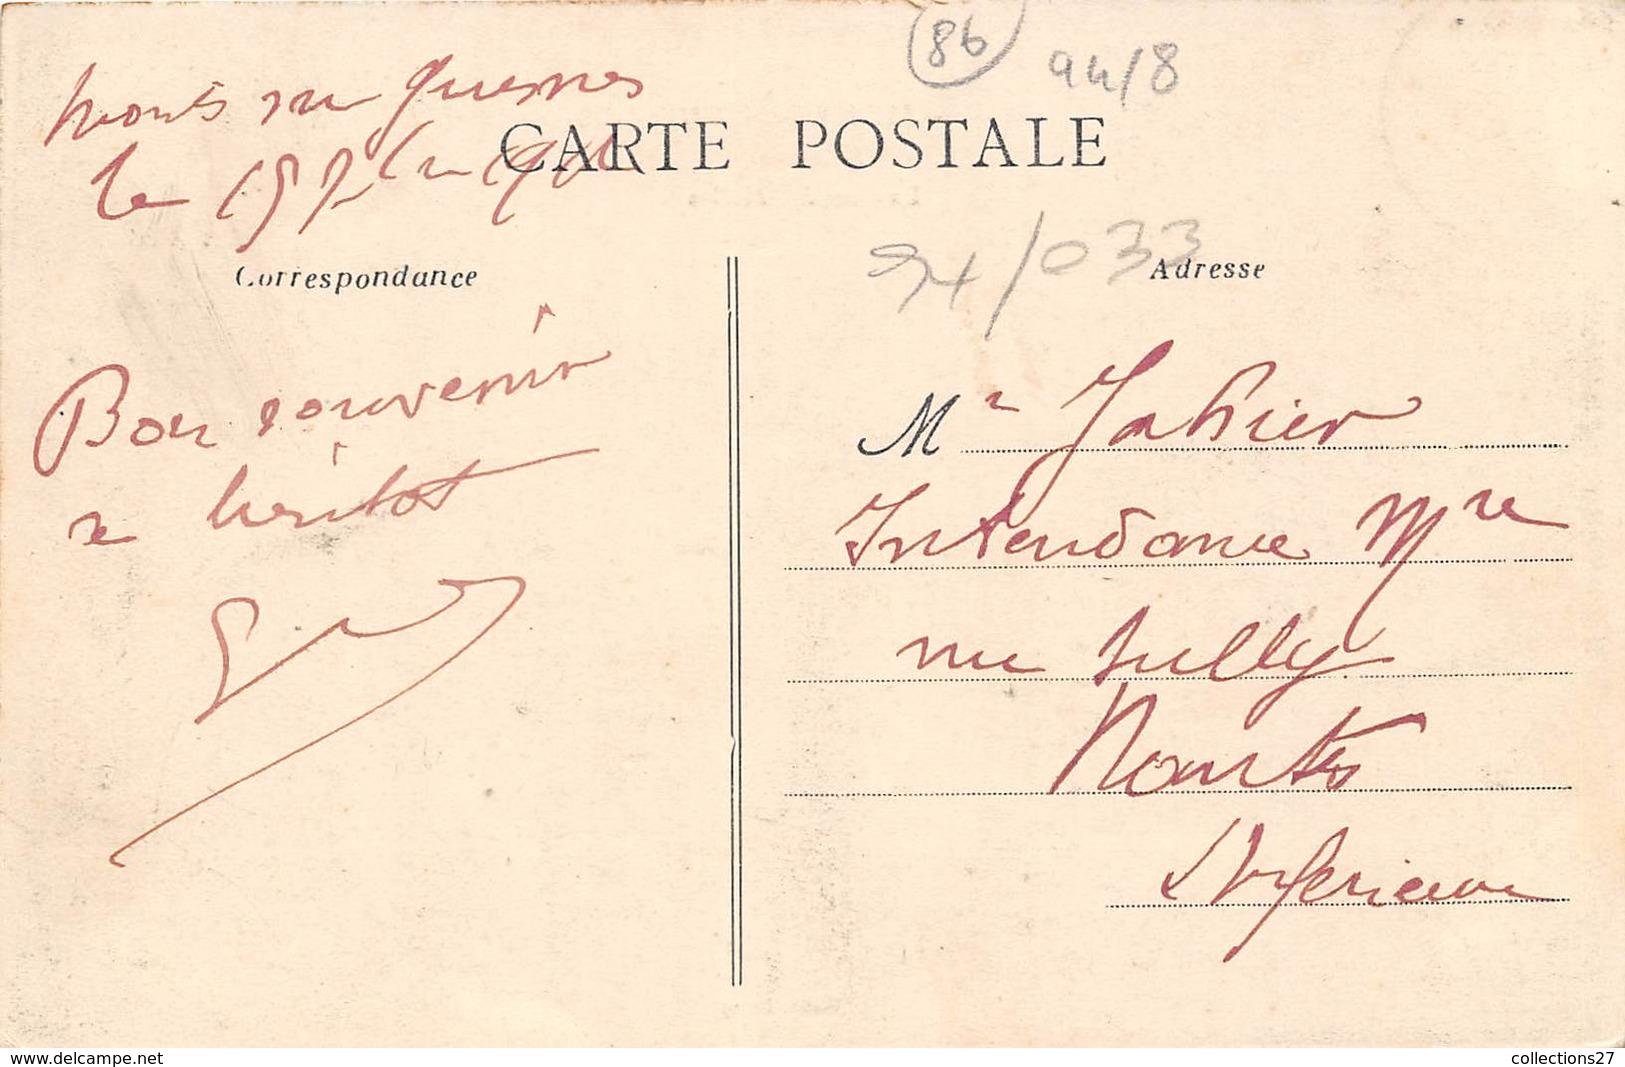 86
94/8
Monts sur Guesnes
le 15
CARTE POSTALE
94/033
Correspondance
Adresse
Bon souvenir
a bientot
Mr Jahier
Intendance Mre
rue Sully
Nantes
Inferieure
www.delcampe.net
collections27